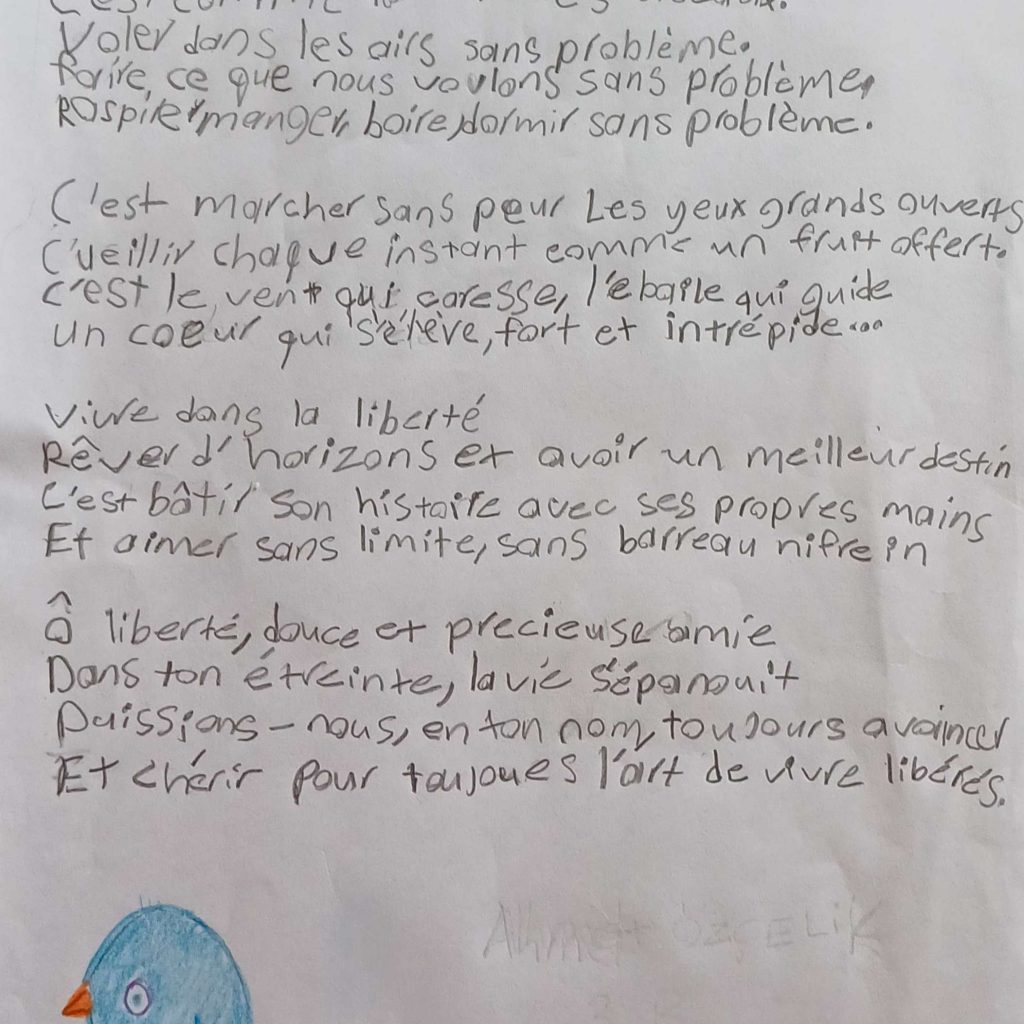 Voler dans les airs sans problème.
Faire, ce que nous voulons sans problème,
Raspirer manger, boire, dormir sans problème.
C'est marcher sans peur Les yeux grands ouverts
C'ueillir chaque instant comme un fruit offert.
C'est le vent qui caresse, l'ebaile qui guide
un coeur qui s'élève, fort et intrépide...
Vivre dans la liberté
Rêver d'horizons et avoir un meilleur destin
C'est bâtir son histoire avec ses propres mains
Et aimer sans limite, sans barreau nifrein
Ô liberté, douce et precieuse amie
Dans ton étreinte, la vie s'épanouit
Puissions-nous, en ton nom, toujours avaincer
Et chérir pour toujoues l'art de vivre libérés.
Ahmet ÖZÇELiK